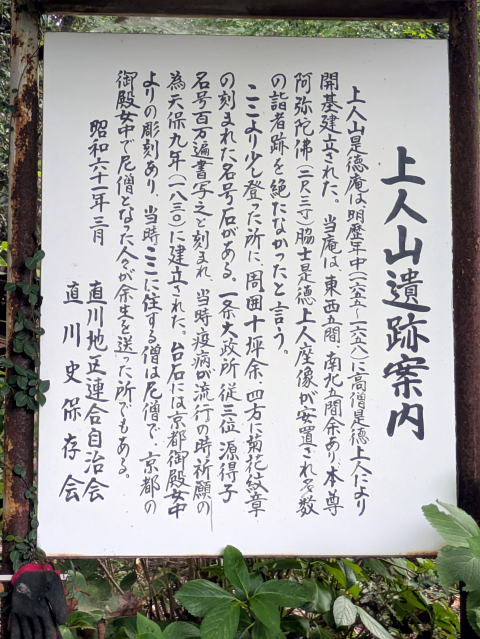 上人山遺跡案内
上人山是徳庵は、明歴年中(一六五五〜一六五八)に高僧是徳上人により
開基建立された。当庵は、東西五間、南北五間余あり、本尊
阿弥陀佛(二尺三寸)脇士是徳上人座像が安置され多数
の詣者跡を絶たなかったと言う。
ここより少し登った所に、周囲十坪余、四方に菊花紋章
の刻まれた名号石がある。一条大政所従三位源得子
名号百万遍書写之と刻まれ、当時疫病が流行の時祈願の
為天保九年(一八三〇)に建立された。台石には京都御殿女中
よりの彫刻あり、当時ここに住する僧は尼僧で、京都の
御殿女中で尼僧となった人々が余生を送った所でもある。
昭和六十一年三月
直川地区連合自治会
直川史保存会